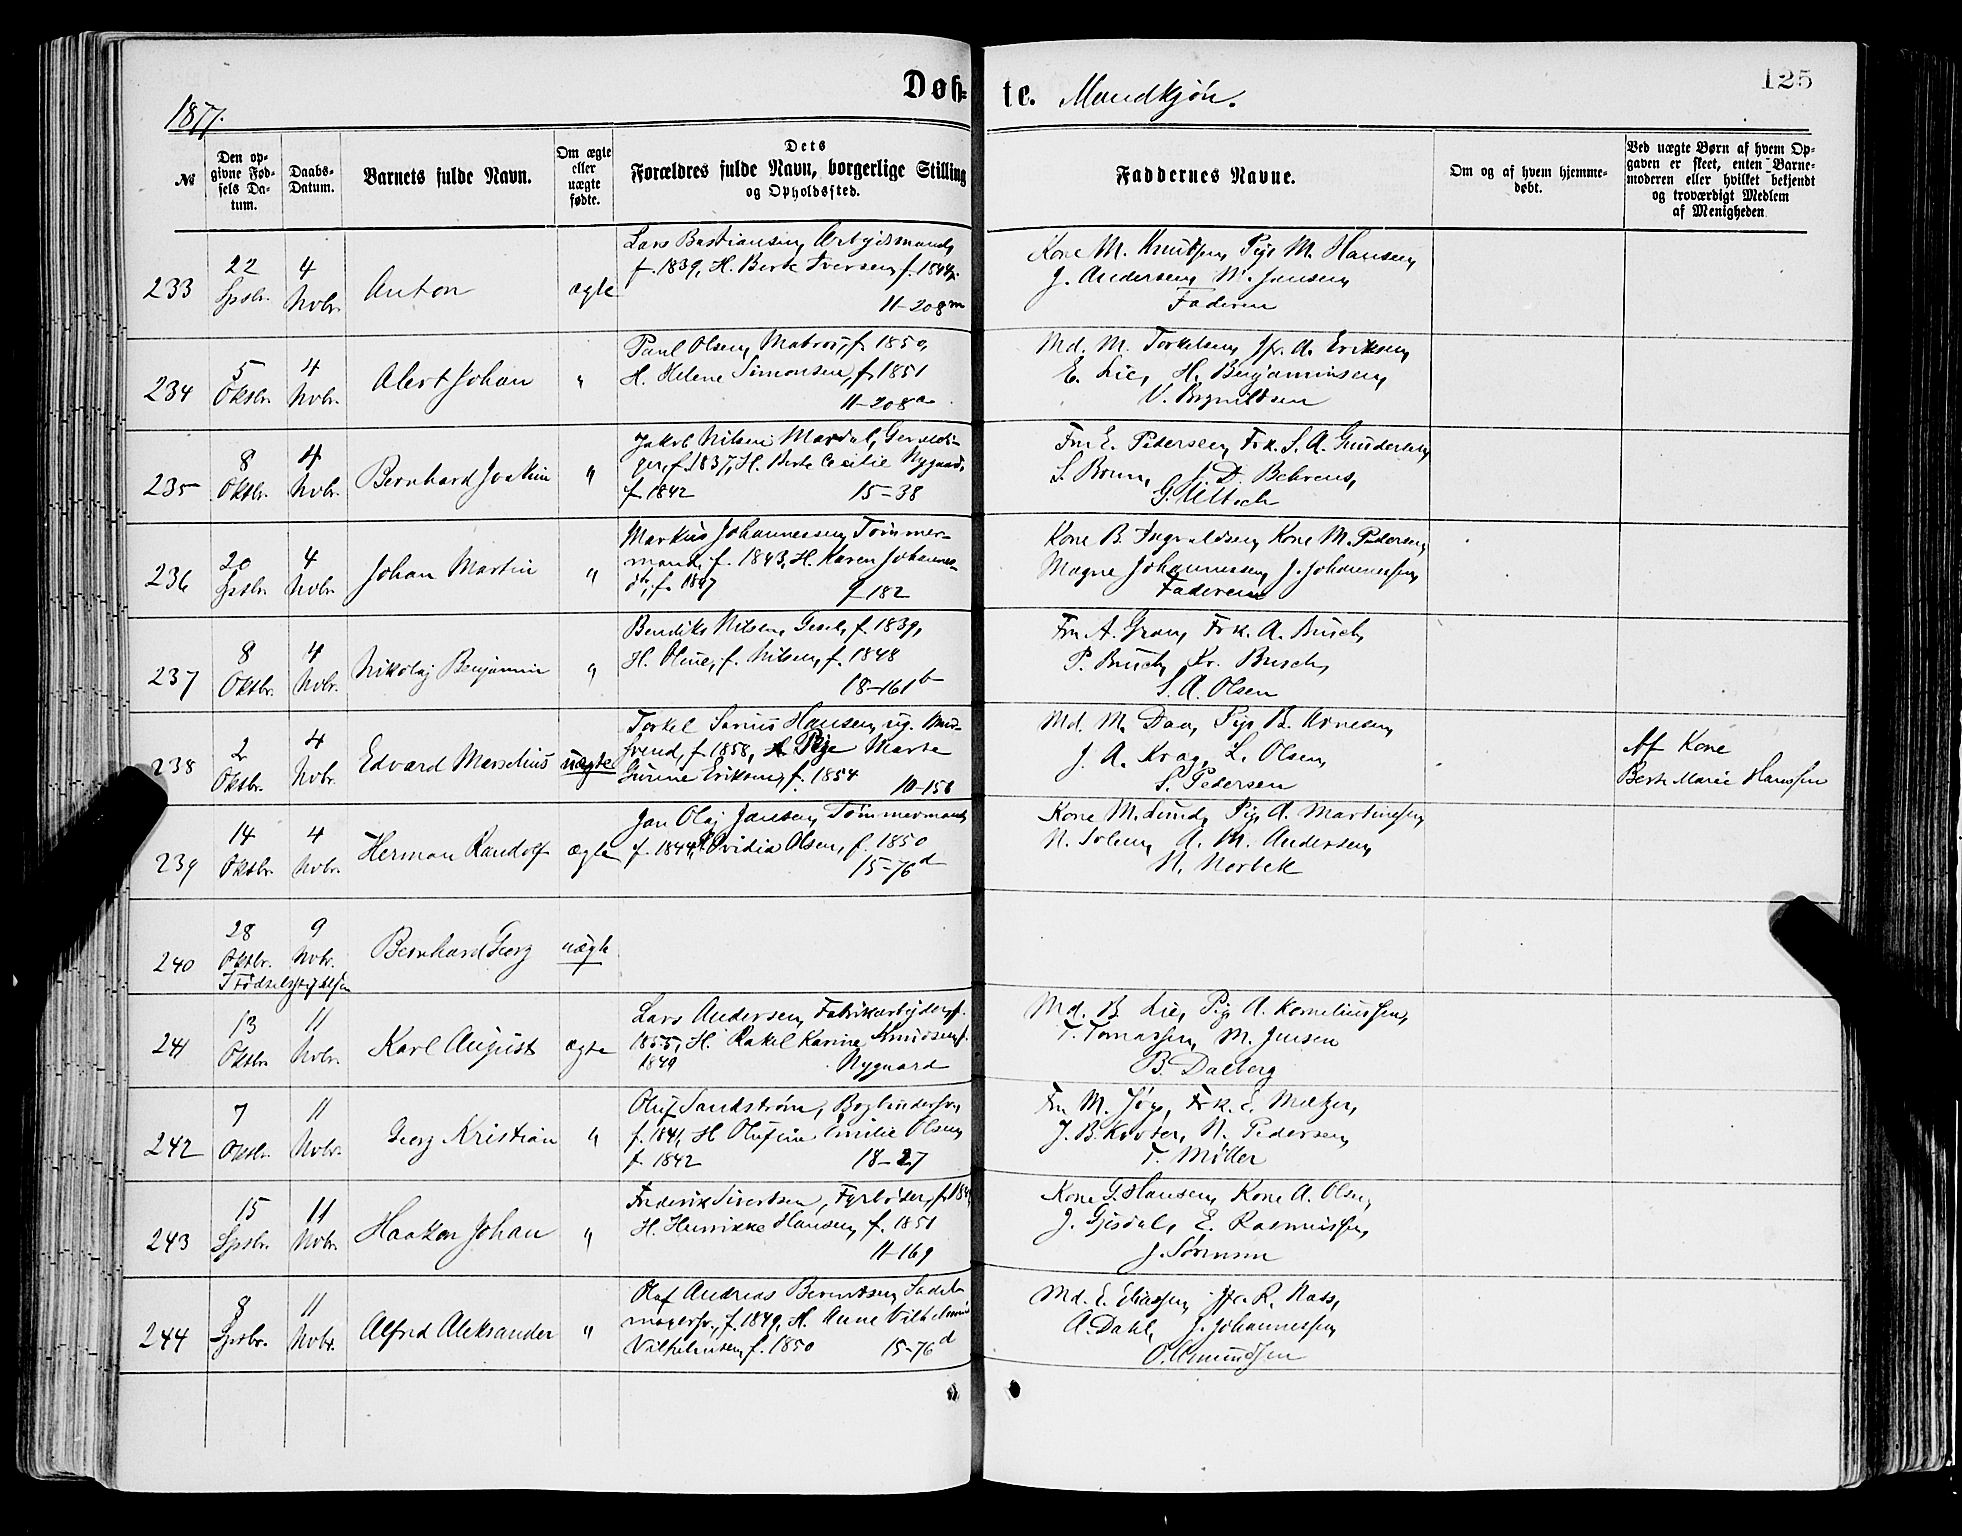 Døb-
te. Mandkjøn.
125
1877.
№
Den op-
givne Fød-
sels Da-
tum.
Daabs-
Datum.
Barnets fulde Navn.
Om ægte
eller
uægte
fødte.
Dets
Forældres fulde Navn, borgerlige Stilling
og Opholdssted.
Faddernes Navne.
Om og af hvem hjemme-
døbt.
Ved uægte Børn af hvem Op-
gaven er skeet, enten Barne-
moderen eller hvilket bekjendt
og troværdigt Medlem
af Menigheden
233
22
Spsbr.
4
Nvbr.
Anton
ægte
Lars Bastiansen, Arbejdsmand,
f. 1839, H. Berte Iversen, f. 1844.
11-208m
Kone M. Knutsen, Pige M. Hansen,
J. Andersen, N. Jensen,
Faderen
234
5
Oktbr.
4
Nvbr.
Alert Johan
"
Paul Olsen, Matros, f. 1850,
H. Helene Simonsen, f. 1851
11-208a
Md. M. Torkelsen, Jfr. A. Eriksen,
E. Lie, H. Benjaminsen,
V. Brynildsen
235
8
Oktbr.
4
Nvbr.
Bernhard Joakim
"
Jakob Nilsen Mardal,
f. 1837, H. Berte Cecilie Nygaard,
f. 1842 15-38
Fru E. Pedersen, Frk. S. A. Gundersen,
S. Brun, J. D. Behrens,
G. Ultsch
236
20
Spsbr.
4
Nvbr.
Johan Martin
"
Markus Johannessen, Tømmer-
mand, f. 1843, H. Karen Johannes-
dtr, f. 1847 9-182
Kone B. Ingvaldsen, Kone M. Pedersen,
Magne Johannessen, J. Johannessen,
Faderen
237
8
Oktbr.
4
Nvbr.
Nikolaj Benjamin
"
Bendiks Nilsen, Gesel, f. 1839,
H. Oline, f. Nilsen, f. 1848
18-161b
Fru A. Gran, Frk. A. Busch,
P. Busch, Kr. Busch,
S. A. Olsen
238
2
Oktbr.
4
Nvbr.
Edvard Marselius
uægte
Torkel Sørius Hansen, ug. Mur-
svend, f. 1858, Pige Marte
Gurine Eriksen, f. 1854 10-156
Md. M. Daa, Pige B. Arnesen,
J. A. Krag, L. Olsen,
S. Pedersen
Af Kone
Berte Marie Hanssen
239
14
Oktbr.
4
Nvbr.
Herman Randolf
ægte
Jan Olaj Jansen, Tømmermand,
f. 1844, H. Ovidia Olsen, f. 1850
15-76d
Kone M. Lund, Pige A. Martinsen,
N. Solem, A. M. Andersen,
N. Norbek
240
28
Oktbr.
9
Nvbr.
I Fødselsstiftelsen
Bernhard Georg
uægte
241
13
Oktbr.
11
Nvbr.
Karl August
ægte
Lars Andersen, Fabrikarbejder, f.
1855, H. Rakel Karine Knudsen, f.
1849 Nygaard
Md. B. Lie, Pige A. Korneliussen,
T. Tomassen, M. Jensen
B. Dalberg
242
7
Oktbr.
11
Nvbr.
Georg Kristian
"
Oluf Sandstrøm, Bogbindersv.,
f. 1841, H. Olufine Emilie Olsen,
f. 1842 18-27
Fru M. Frk. E. Metzer,
J. B. N. Pedersen,
T. Møller
243
15
Spsbr.
11
Nvbr.
Haakon Johan
"
Frederik Sivertsen, Fyrbøder, f.
H. Henrikke Hansen, f. 1851
11-169
Kone G. Hansen, Kone A. Olsen,
J. Gjesdal, E. Rasmussen,
J. Sørensen
244
8
Spsbr.
11
Nvbr.
Alfred Aleksander
"
Olaf Andreas Berentsen, Sadel-
magersv., f. 1849, H. Anne Vilhelmine
Vilhelmsen, f. 1850 15-76d
Md. E. Eliassen, Jfr. R. Nass,
A. Dahl, J. Johannessen,
O. Amundsen